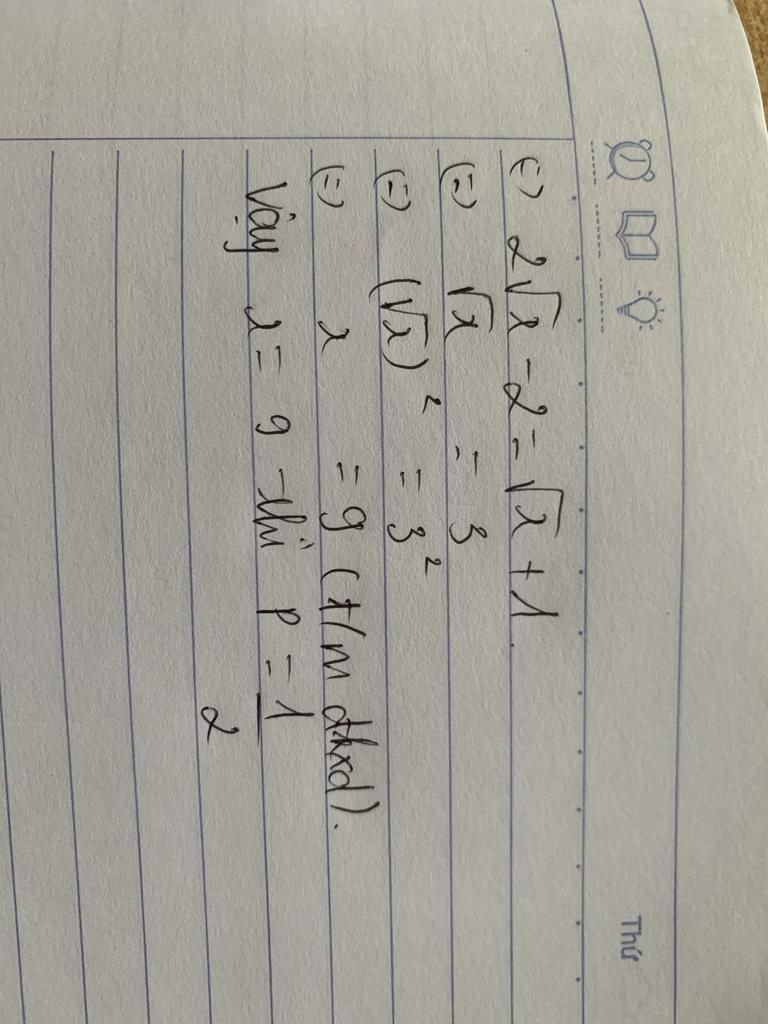 Thứ
(-) 2√x - 2 = √x + 1.
(=) √x = 3
(=) (√x)² = 3²
(=) x = 9 (t/m đkxđ).
Vậy x = 9 thì P = 1/2